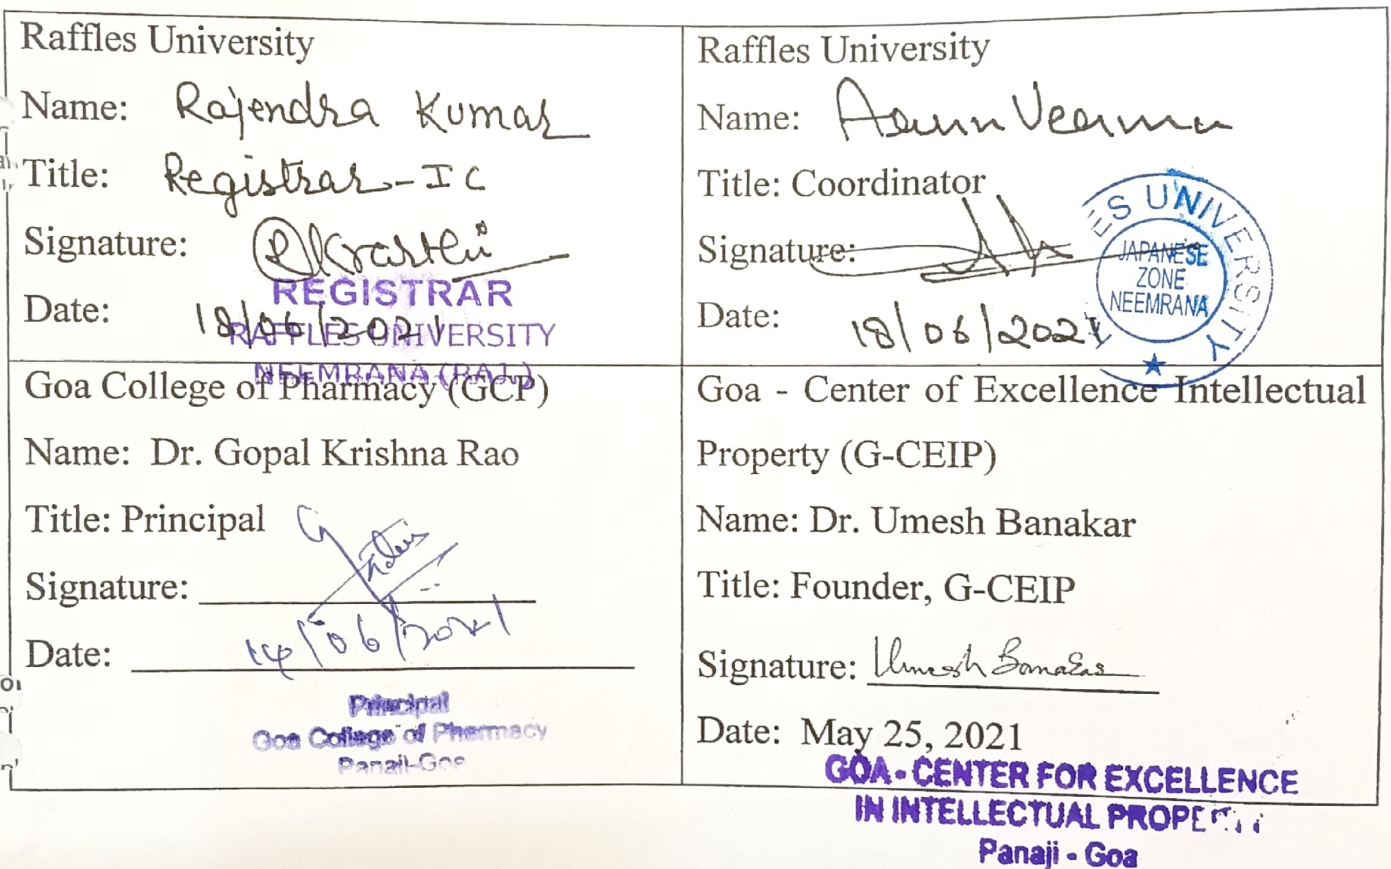 Raffles University
Name: Rajendra Kumar
Title: Registrar-IC
Signature:
REGISTRAR
Date: 18/06/2021
RAFFLES UNIVERSITY
NEEMRANA (RAJ.)
Raffles University
Name: Arun Veerma
Title: Coordinator
Signature:
Date: 18/06/2021
ES UNIVERSITY
JAPANESE
ZONE
NEEMRANA
Goa College of Pharmacy (GCP)
Name: Dr. Gopal Krishna Rao
Title: Principal
Signature:
Date: 14/06/2021
Principal
Goa College of Pharmacy
Panaji-Goa
Goa - Center of Excellence Intellectual
Property (G-CEIP)
Name: Dr. Umesh Banakar
Title: Founder, G-CEIP
Signature: Umesh Banakar
Date: May 25, 2021
GOA - CENTER FOR EXCELLENCE
IN INTELLECTUAL PROPE
Panaji - Goa